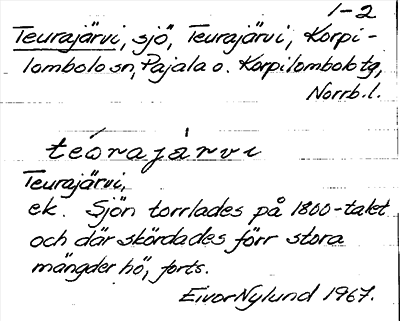 1-2
Teurajärvi, sjö, Teurajärvi, Korpi-
lombolo sn, Pajala o. Korpilombolo tg,
Norrb. l.
teórajárvi
Teurajärvi,
ek. Sjön torrlades på 1800-talet
och där skördades förr stora
mängder hö, forts.
Eivor Nylund 1967.